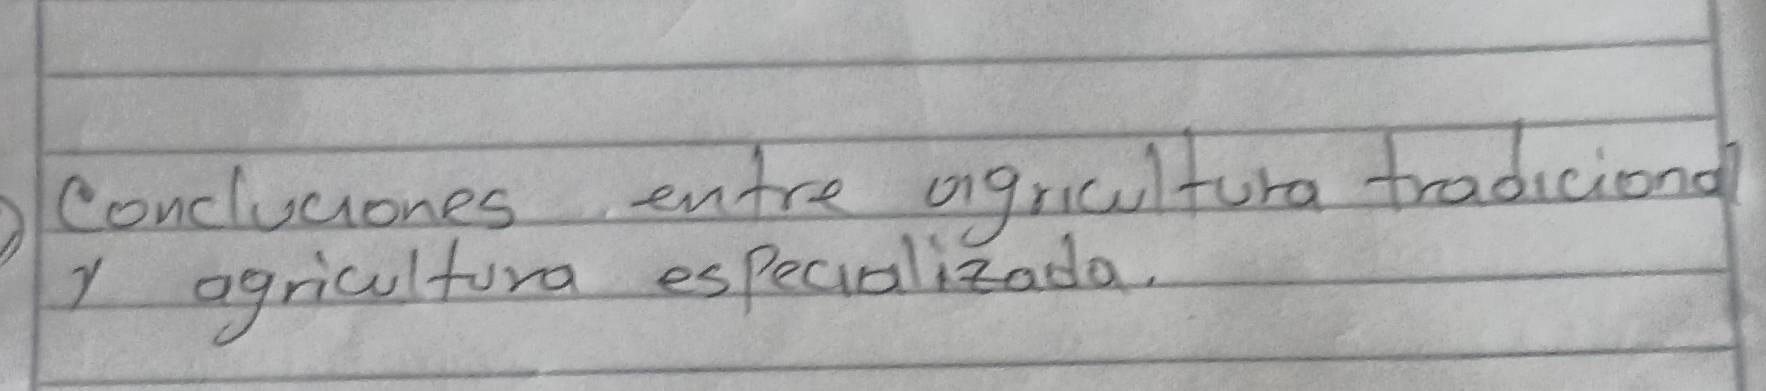 Concluciones entre agricultura tradicional
y agricultura especializada.